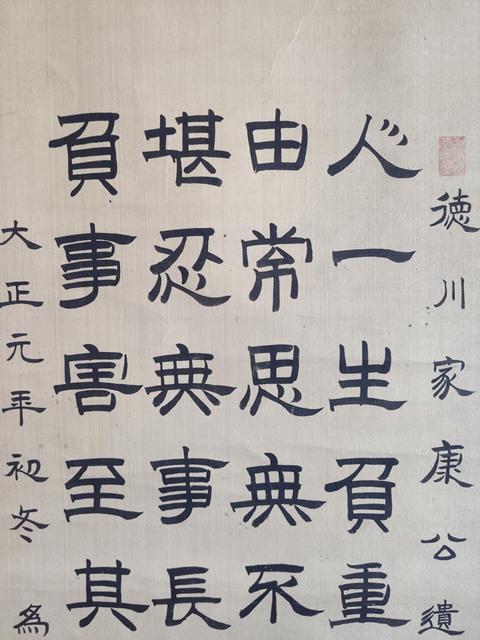 徳川家康公遺
人一生負重
由常思無不
堪忍無事長
負事害至其
大正元年初冬為